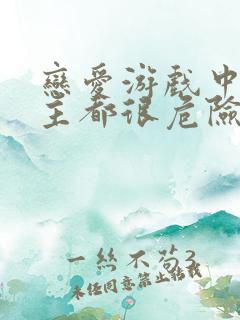 戀愛游戲中
主都很危險
一絲不茍3
未經同意禁止轉載